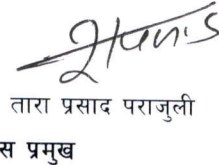 तारा प्रसाद पराजुली
स प्रमुख